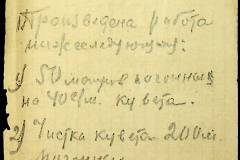 Произведена работа
нижеследующая:
1) 50 метров погонных
на 40 см. кувета.
2) Чистка кувета 200 м.
погонных